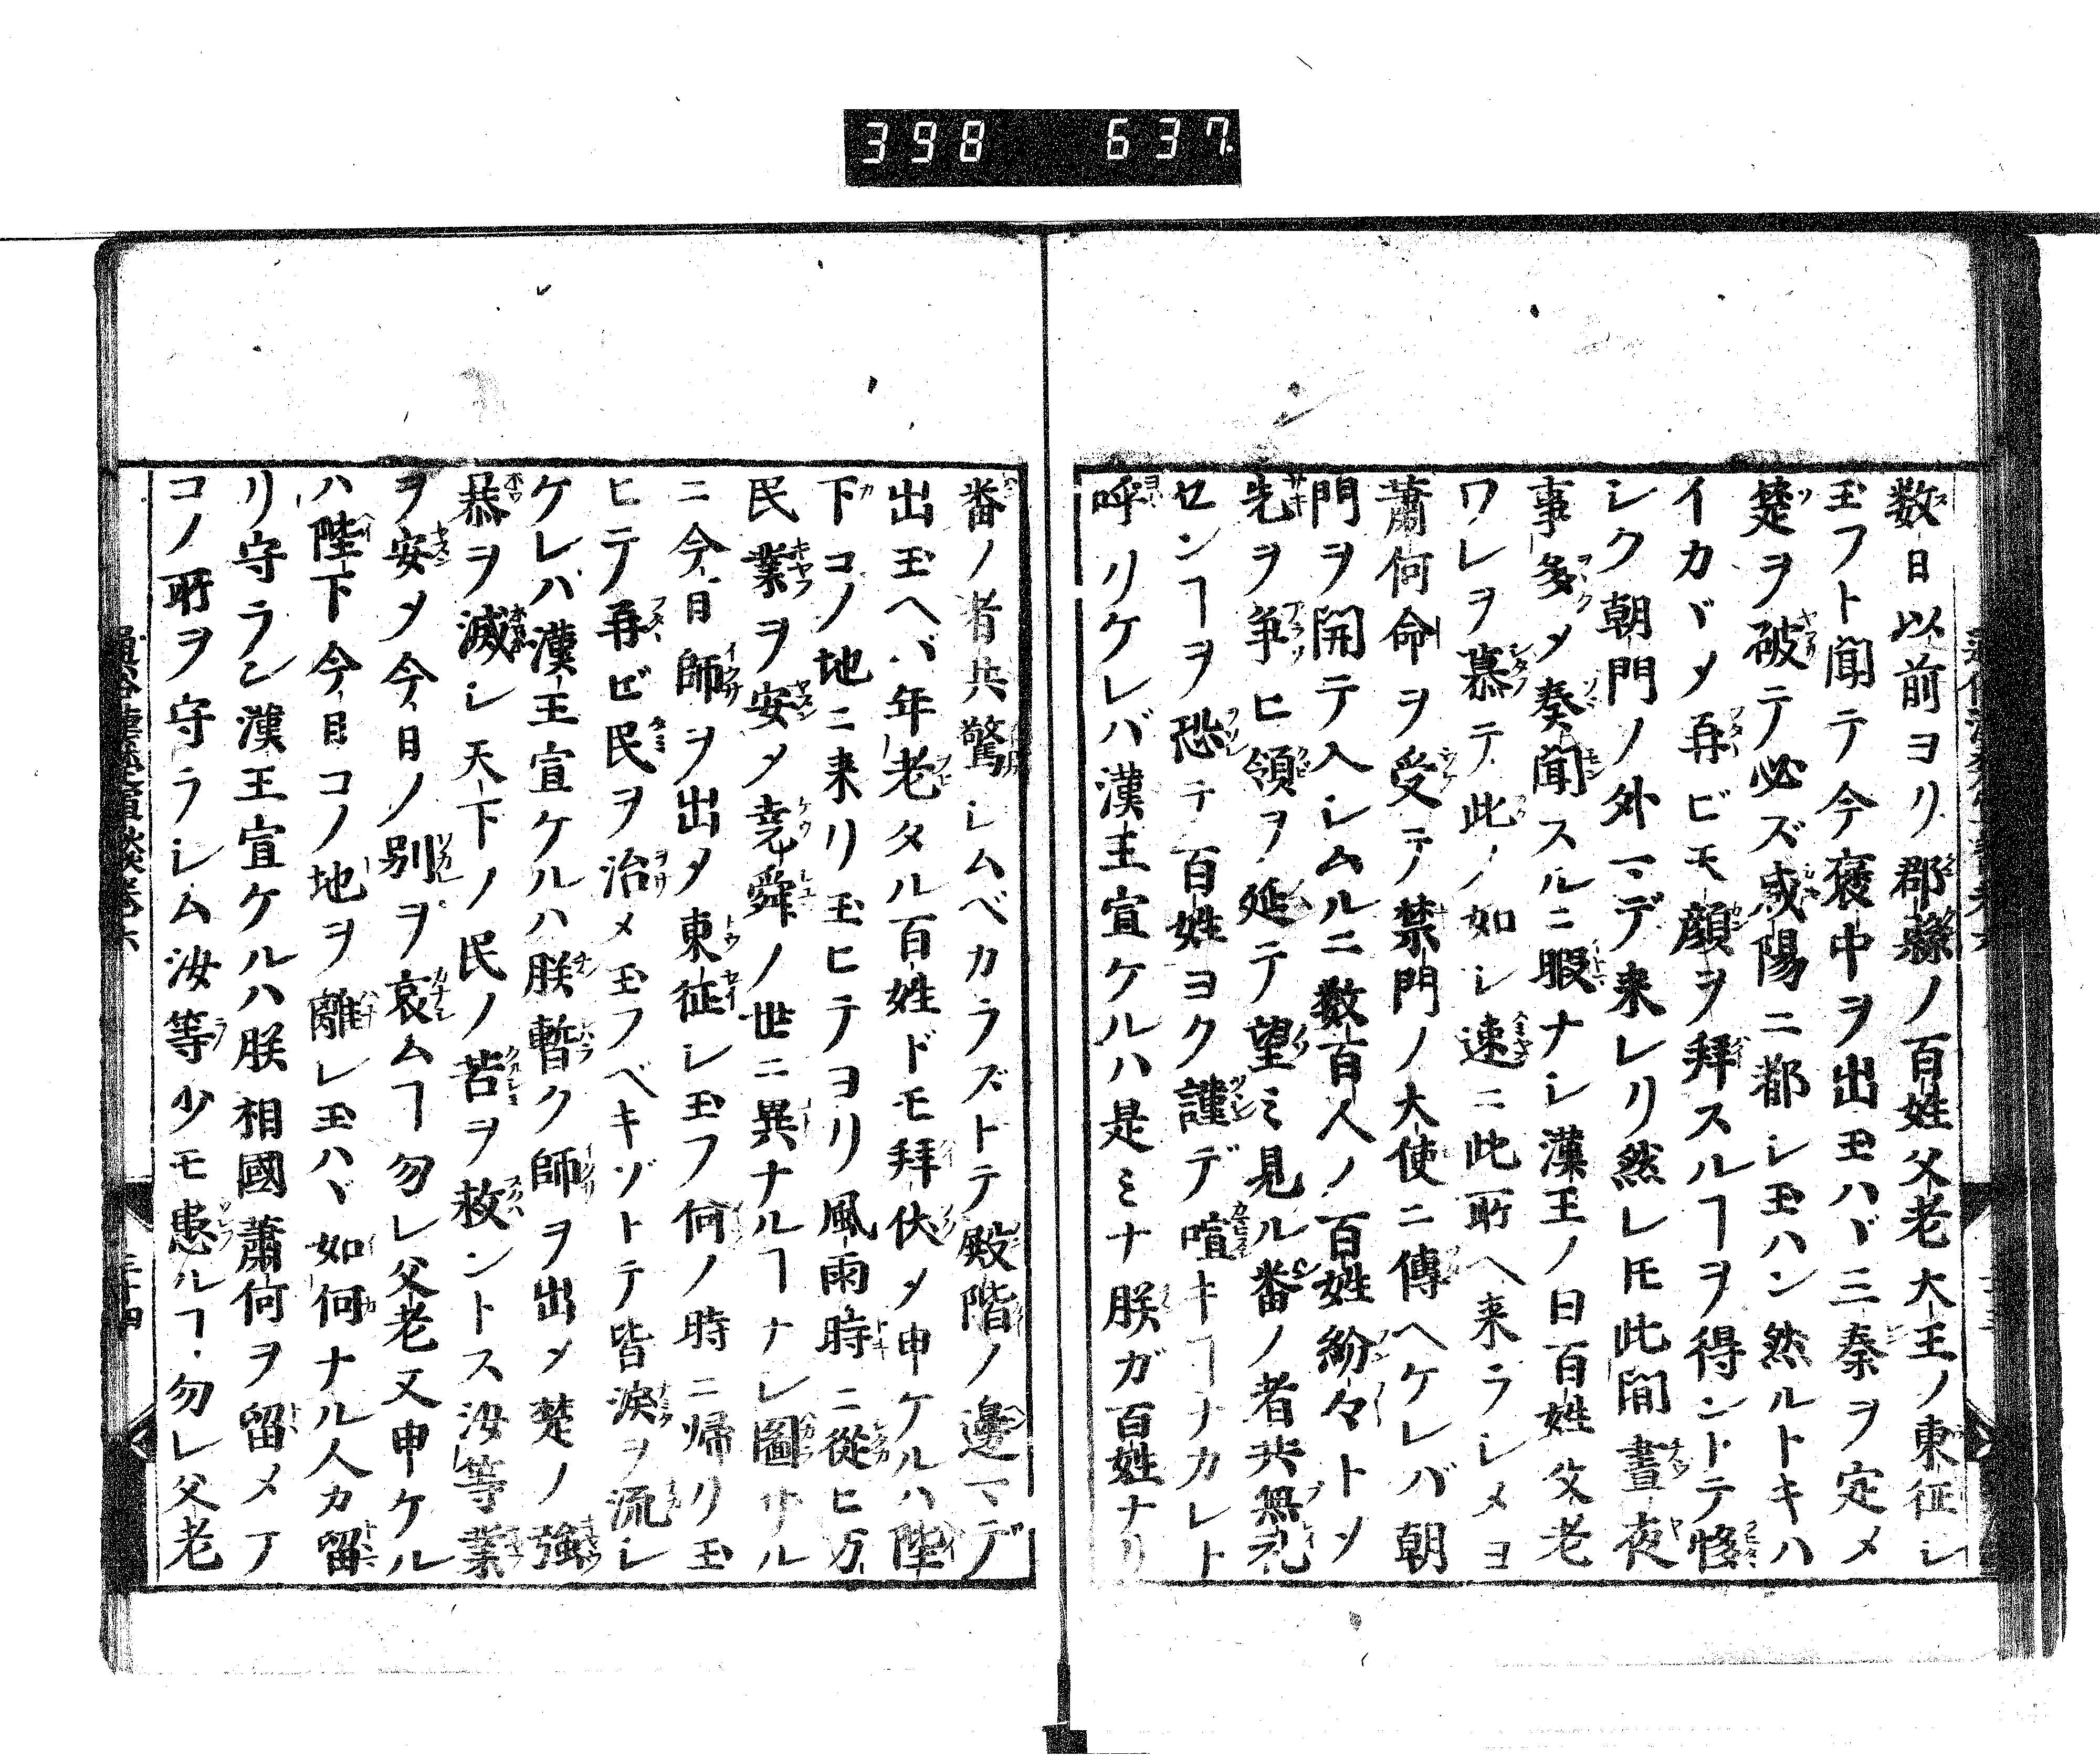 398 637
数日以前ヨリ郡縣ノ百姓父老大王ノ東征シ
玉フト聞テ今襃中ヲ出玉ハヾ三秦ヲ定メ
楚ヲ破テ必ズ咸陽ニ都シ玉ハン然ルトキハ
イカヾメ再ビモ顔ヲ拜スルヿヲ得ントテ
シク朝門ノ外マデ来レリ然レ𪜈此間晝夜
事多メ奏聞スルニ暇ナシ漢王ノ曰百姓父老
ワレヲ慕テ此ノ如シ速ニ此所ヘ来ラシメヨ
蕭何命ヲ受テ禁門ノ大使ニ傳ヘケレバ朝
門ヲ開テ入シムルニ数百人ノ百姓紛々トメ
先ヲ争ヒ領ヲ延テ望ミ見ル番ノ者共無礼
センヿヲ恐テ百姓ヨク謹デ喧キヿナカレト
呼リケレバ漢王宣ケルハ是ミナ朕ガ百姓ナリ
番ノ者共驚シムベカラズトテ殿階ノ邊マデ
出玉ヘバ年老タル百姓ドモ拜伏メ申ケルハ陛
下コノ地ニ来リ玉ヒテヨリ風雨時ニ從ヒ万
民業ヲ安メ堯舜ノ世ニ異ナルヿナシ圖ザル
ニ今日師ヲ出メ東征シ玉フ何ノ時ニ帰リ玉
ヒテ再ビ民ヲ治メ玉フベキゾトテ皆涙ヲ流シ
ケレバ漢王宣ケルハ朕暫ク師ヲ出メ楚ノ強
暴ヲ滅シ天下ノ民ノ苦ヲ救ントス汝等業
ヲ安メ今日ノ別ヲ哀ムヿ勿レ父老又申ケル
ハ陛下今日コノ地ヲ離レ玉ハヾ如何ナル人カ留
リ守ラン漢王宣ケルハ朕相國蕭何ヲ留メテ
コノ所ヲ守ラシム汝等少モ患ルヿ勿レ父老